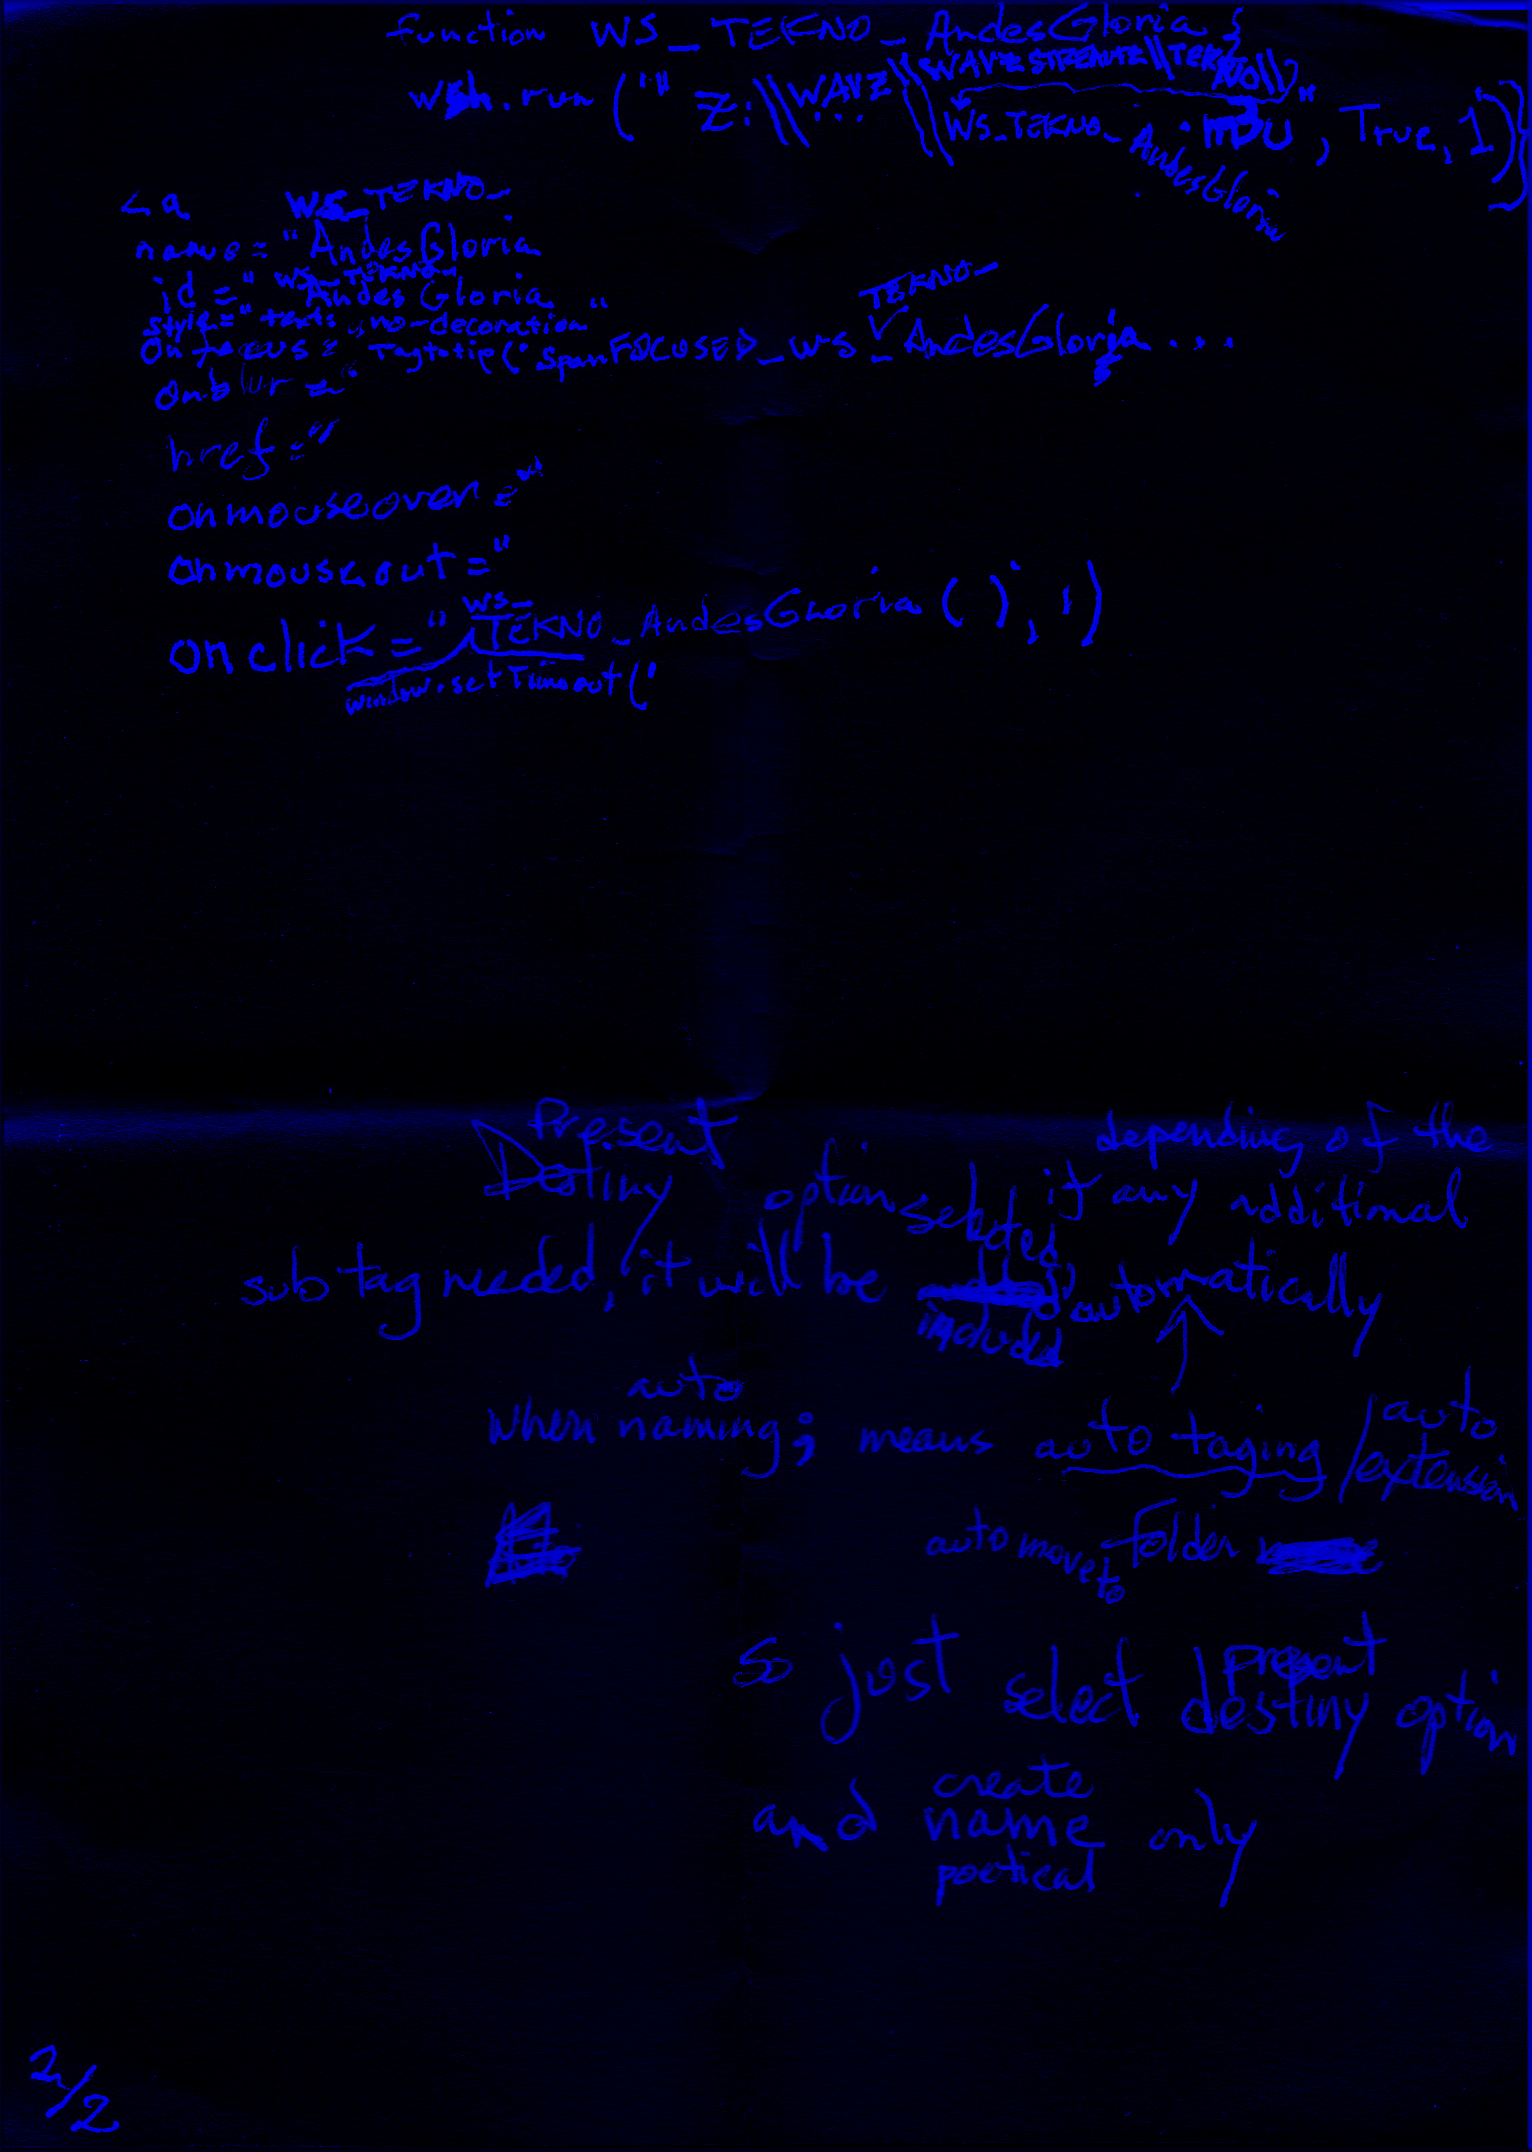 function WS_TEKNO_AndesGloria {
WAVZSTREAMZ\\TEKNO\\
wsh.run ("'" Z:\\WAVZ\\ ... \\WS_TEKNO_AndesGloria.m3u", True, 1)}
<a
name="WS_TEKNO_AndesGloria
id="WS_TEKNO_AndesGloria "
style="text: no-decoration"
Onfocus=" Tagtotip('SpanFOCUSED_WS_TEKNO-AndesGloria...
Onblur="
href="
onmouseover="
onmouseout="
onclick="window.setTimeout('WS_TEKNO_AndesGloria()', 1)
Present depending of the
Destiny option selected if any additional
sub tag needed, it will be included automatically
when auto naming; means auto taging / auto extension
auto move to Folder
so just select present destiny option
and create name only
poetical
2/2